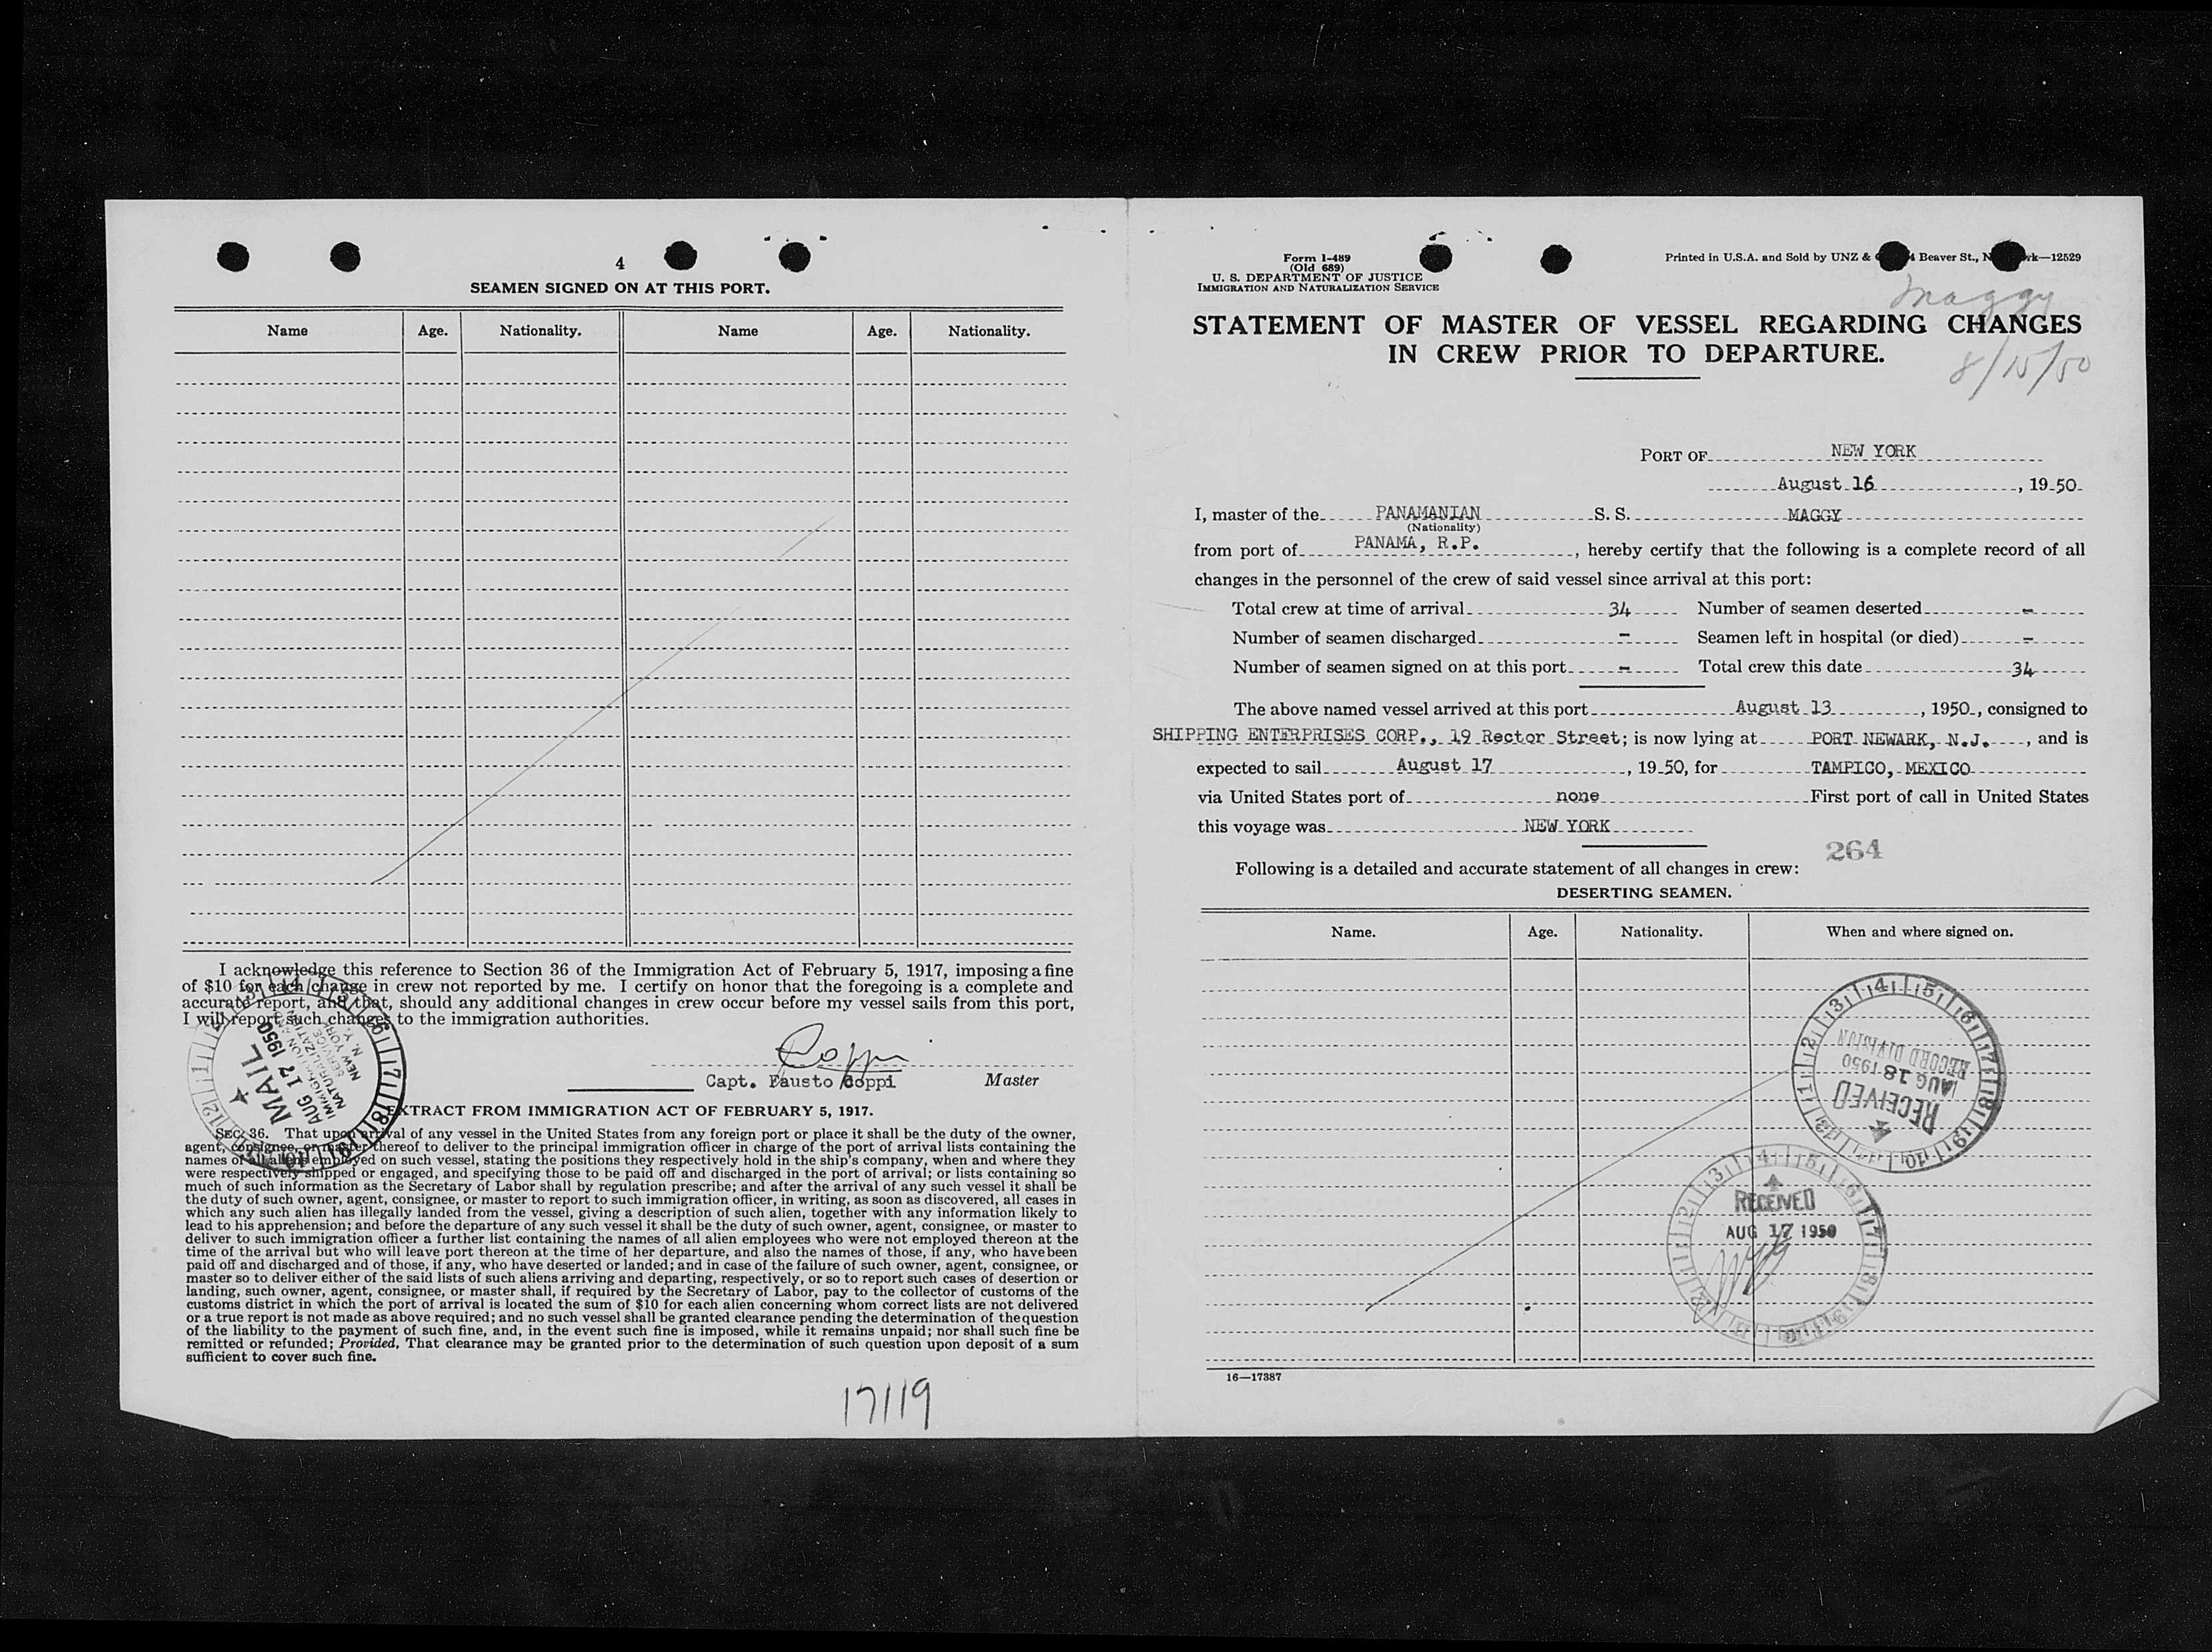 4
SEAMEN SIGNED ON AT THIS PORT.
Name Age. Nationality. Name Age. Nationality.
I acknowledge this reference to Section 36 of the Immigration Act of February 5, 1917, imposing a fine
of $10 for each change in crew not reported by me. I certify on honor that the foregoing is a complete and
accurate report, and that, should any additional changes in crew occur before my vessel sails from this port,
I will report such changes to the immigration authorities.
Coppi
Capt. Fausto Coppi Master
MAIL
AUG 17 1950
IMMIGRATION AND
NATURALIZATION
SERVICE
NEW YORK
N. Y.
EXTRACT FROM IMMIGRATION ACT OF FEBRUARY 5, 1917.
SEC. 36. That upon arrival of any vessel in the United States from any foreign port or place it shall be the duty of the owner,
agent, consignee, or master thereof to deliver to the principal immigration officer in charge of the port of arrival lists containing the
names of all aliens employed on such vessel, stating the positions they respectively hold in the ship's company, when and where they
were respectively shipped or engaged, and specifying those to be paid off and discharged in the port of arrival; or lists containing so
much of such information as the Secretary of Labor shall by regulation prescribe; and after the arrival of any such vessel it shall be
the duty of such owner, agent, consignee, or master to report to such immigration officer, in writing, as soon as discovered, all cases in
which any such alien has illegally landed from the vessel, giving a description of such alien, together with any information likely to
lead to his apprehension; and before the departure of any such vessel it shall be the duty of such owner, agent, consignee, or master to
deliver to such immigration officer a further list containing the names of all alien employees who were not employed thereon at the
time of the arrival but who will leave port thereon at the time of her departure, and also the names of those, if any, who have been
paid off and discharged and of those, if any, who have deserted or landed; and in case of the failure of such owner, agent, consignee, or
master so to deliver either of the said lists of such aliens arriving and departing, respectively, or so to report such cases of desertion or
landing, such owner, agent, consignee, or master shall, if required by the Secretary of Labor, pay to the collector of customs of the
customs district in which the port of arrival is located the sum of $10 for each alien concerning whom correct lists are not delivered
or a true report is not made as above required; and no such vessel shall be granted clearance pending the determination of the question
of the liability to the payment of such fine, and, in the event such fine is imposed, while it remains unpaid; nor shall such fine be
remitted or refunded; Provided, That clearance may be granted prior to the determination of such question upon deposit of a sum
sufficient to cover such fine.
17119
Form I-489
(Old 689)
U. S. DEPARTMENT OF JUSTICE
IMMIGRATION AND NATURALIZATION SERVICE
Printed in U.S.A. and Sold by UNZ & Beaver St., —12529
Maggy
STATEMENT OF MASTER OF VESSEL REGARDING CHANGES
IN CREW PRIOR TO DEPARTURE.
8/15/50
PORT OF NEW YORK
August 16, 1950
I, master of the PANAMANIAN S. S. MAGGY
(Nationality)
from port of PANAMA, R.P., hereby certify that the following is a complete record of all
changes in the personnel of the crew of said vessel since arrival at this port:
Total crew at time of arrival 34 Number of seamen deserted -
Number of seamen discharged - Seamen left in hospital (or died) -
Number of seamen signed on at this port - Total crew this date 34
The above named vessel arrived at this port August 13, 1950, consigned to
SHIPPING ENTERPRISES CORP., 19 Rector Street; is now lying at PORT NEWARK, N.J., and is
expected to sail August 17, 1950, for TAMPICO, MEXICO
via United States port of none First port of call in United States
this voyage was NEW YORK
264
Following is a detailed and accurate statement of all changes in crew:
DESERTING SEAMEN.
Name. Age. Nationality. When and where signed on.
RECEIVED
AUG 18 1950
RECORD DIVISION
RECEIVED
AUG 17 1950
16—17387